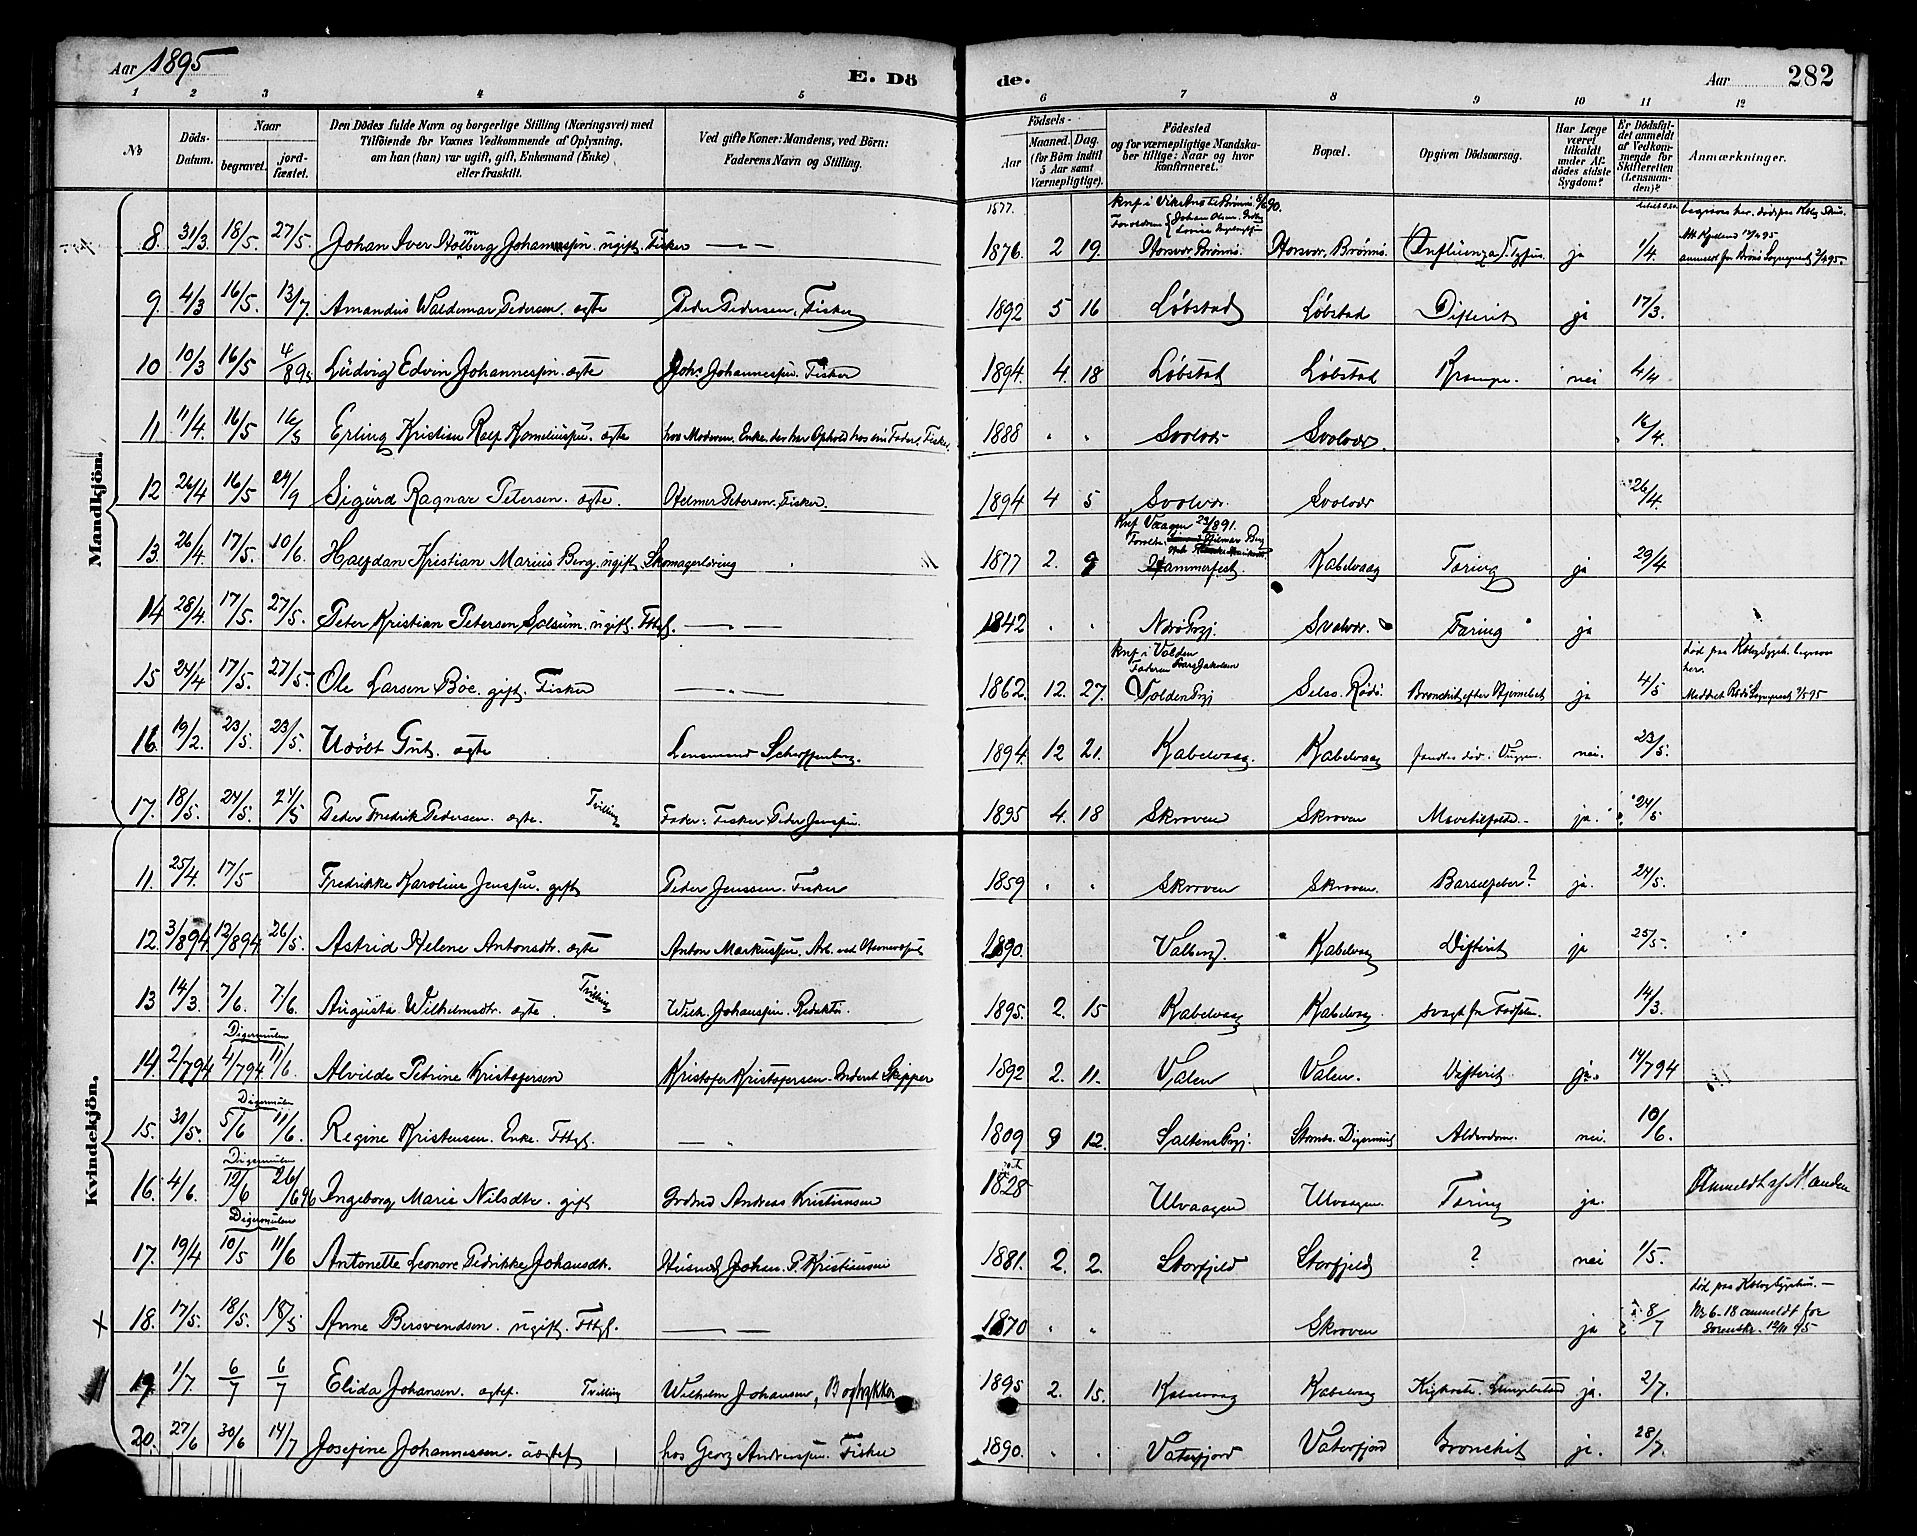 Aar 1895 E. Dö de. Aar 282
1 2 3 4 5 6 7 8 9 10 11 12
No Döds-Datum. Naar begravet. jordfæstet. Den Dödes fulde Navn og borgerlige Stilling (Næringsvei) med Tilföiende for Voxnes Vedkommende af Oplysning, om han (hun) var ugift, gift, Enkemand (Enke) eller fraskilt. Ved gifte Koner: Mandens, ved Börn: Faderens Navn og Stilling. Födsels- Aar Maaned. Dag. (for Börn indtil 5 Aar samt Værnepligtige). Födested og for værnepligtige Mandskaber tillige: Naar og hvor konfirmeret. Bopæl. Opgiven Dödsaarsag. Har Læge været tilkaldt under Afdödes sidste Sygdom? Er Dödsfaldet anmeldt af Vedkommende for Skifteretten (Lensmanden)? Anmærkninger.
Mandkjön.
8. 31/3 18/5 27/5 Johan Iver Holmberg Johannessen. ugift. Fisker — 1876 2 19. Horsvær Brönnö. Horsvær, Brönnö. (Influenza). Tyfus. ja 1/4.
9. 4/3 16/5 13/7 Amandus Waldemar Pedersen. ægte Peder Pedersen. Fisker 1892 5 16 Löbstad Löbstad Difterit ja 17/3.
10 10/3 16/5 4/895 Ludvig Edvin Johannessen. ægte Johs Johannessen. Fisker 1894. 4. 18 Löbstad Löbstad Krampe. nei 4/4
11 11/4. 16/5 Erling Kristian Rolf Korneliussen. ægte hos Moderen. Enke. der har Ophold hos sin Fader. Fisker. 1888 " " Svolvær Svolvær. 16/4.
12 26/4 16/5 29/9 Sigurd Ragnar Petersen. ægte. Helmer Petersen. Fisker. 1894 4 5 Svolvær. Svolvær 26/4.
13. 26/4. 17/5. 10/6. Halfdan Kristian Marius Berg. ugift. Skomagerlæring 1877 2. 9 Knf Vaagan Hammerfest Kabelvaag Tæring ja 29/4
14 28/4. 17/5. 27/5. Peter Kristian Petersen Solsum. ugift. Fttgl. — 1842 " " Nærö Prgj. Svolvær. Tæring ja
15 24/4 17/5. 27/5. Ole Larsen Böe. gift. Fisker — 1862. 12. 27. knf i Volden Volden Prgj Selsö. Rödö. Bronchit efter ja 4/5 död paa Kblvg Sygeh. begraven her.
16. 19/2. 23/5. 23/5. Udöbt Gut. ægte Lensmand Scheffenberg. 1894. 12 21. Kabelvaag. Kabelvaag fandtes död i Vuggen. nei. 23/5.
17. 18/5. 24/5. 24/5 Peder Fredrik Pedersen. ægte. Tvilling Fader: Fisker Peder Jenssen. 1895 4. 18 Skroven Skroven ja. 24/5
Kvindekjön.
11. 25/4. 17/5 Fredrikke Karoline Jenssen. gift Peder Jenssen. Fisker 1859 " " Skroven Skroven. Barselfeber? ja. 24/5.
12. 3/894 12/894 26/5. Astrid Helene Antonsdtr. ægte Anton Markussen. Arb. ved 1890. Valberg. Kabelvaag Difterit ja 25/5.
13 14/3. 7/6. 7/6. Augusta Wilhelmsdtr. ægte. Tvilling Wilh. Johansen. Redaktör. 1895. 2. 15 Kabelvaag Kabelvaag. svagt fra Födselen. 14/3.
Digermulen
14. 2/794 4/794 11/6. Alvilde Petrine Kristofersen Kristofer Kristofersen. Inderst Skipper 1892 2. 11. Valen Valen. Difterit ja. 14/794
Digermulen
15. 31/5. 5/6 11/6. Regine Kristensen. Enke. Fttgl. — 1809 9 12. Saltens Prgj. Digermul Alderdom. nei. 10/6.
Digermulen
16. 4/6. 12/6 26/696 Ingeborg Marie Nilsdtr. gift Grdmd Andreas Kristiansen 1828 Ulvaagen Ulvaagen. Tæring ja. Anmeldt af Manden
Digermulen
17. 19/4 10/5 11/6 Antonette Leonore Pedrikke Johansdtr. Husmd Johan P. Kristiansen 1881. 2. 2. Storfjeld Storfjeld ? nei 1/5.
18. 17/5. 18/5. 18/5 Anne Bersvendsen. ugift. Fttgl. — 1870 " " Skroven ja 8/7 Nr 6-18 anmeldt for Sorenskr.
19. 1/7. 6/7 6/7 Elida Johansen. ægtef. Tvilling Wilhelm Johansen, Bogtrykker 1895 2. 15. Kabelvaag Kabelvaag Kighoste. ja. 2/7.
20. 27/6 30/6 14/7 Josefine Johannessen. uægtef hos Georg Andreassen. Fisker 1890. " " Vaterfjord Vaterfjord Bronchit ja. 28/7.